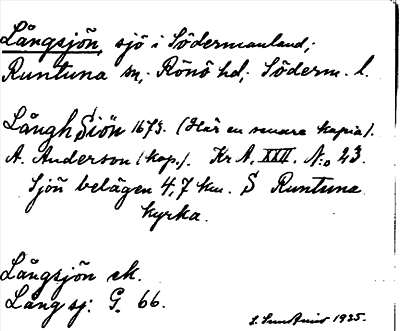 Långsjön, sjö i Södermanland;
Runtuna sn, Rönö hd; Söderm. l.
Långh Siön 1673. (Här en senare kopia).
A. Anderson (kop.). Kr A. XXII. N:o 23.
Sjön belägen 4,7 km. S Runtuna
kyrka.
Långsjön ek.
Lång sj: G. 66.
1935.